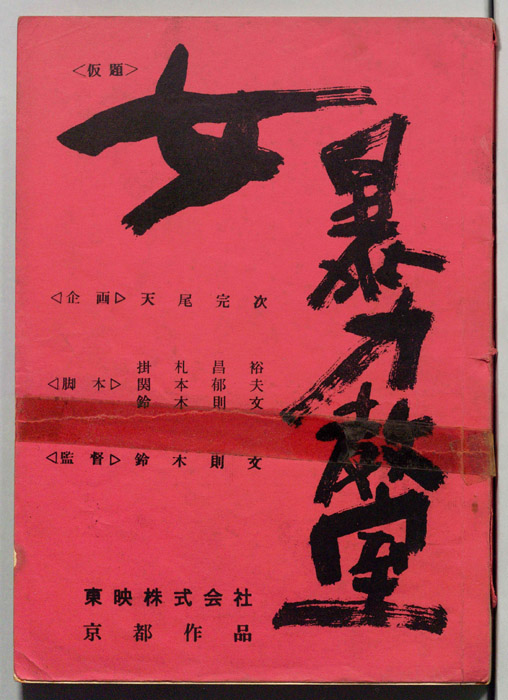 〈仮題〉
女
暴力教室
◁企画▷ 天尾完次
掛札昌裕
◁脚本▷ 関本郁夫
鈴木則文
◁監督▷ 鈴木則文
東映株式会社
京都作品